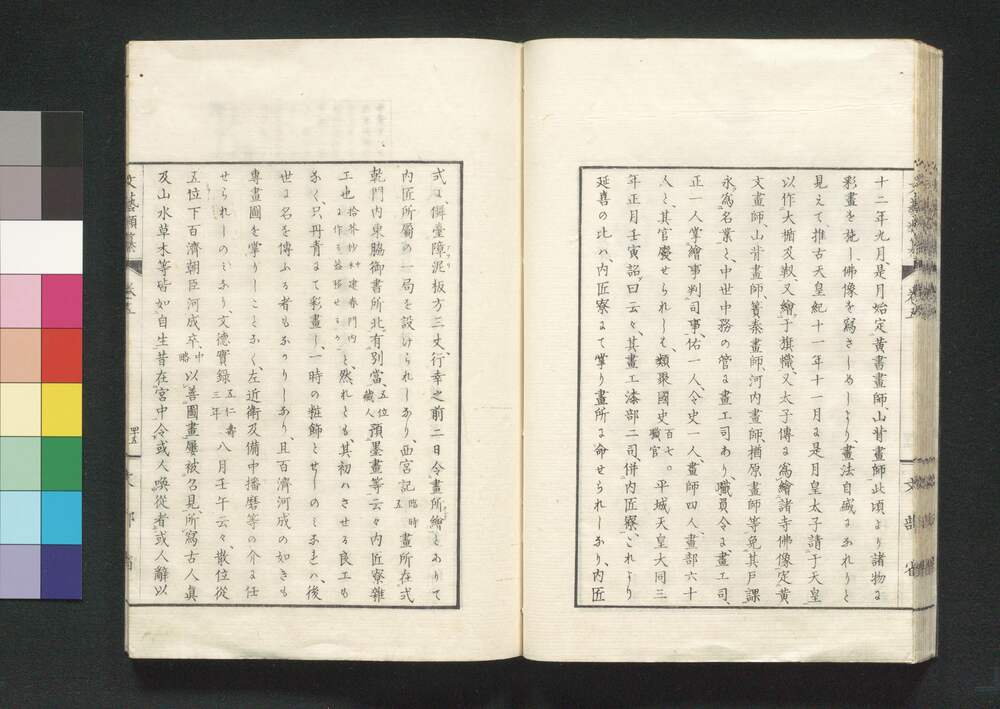 十二年九月、是月始定黃書畫師、山背畫師此頃より諸物に
彩畫を施し、佛像を寫さしめしより、畫法自盛になれりと
見えて、推古天皇紀十一年十一月に是月皇太子請于天皇
以作大楯及靫、又繪于旗幟、又太子傳に爲繪諸寺佛像定黃
文畫師、山背畫師、簀秦畫師、河内畫師、楢原畫師等免其戸課
永爲名業と、中世中務の管に畫工司あり、職員令に、畫工司、
正一人、掌繪事判司事、佑一人、令史一人、畫師四人、畫部六十
人と、其官廢せられしも、類聚國史百七職官。平城天皇大同三
年正月壬寅詔曰云々、其畫工漆部二司、併内匠寮、これより
延喜の比ハ、内匠寮にて掌り畫所に命せられしなり、内匠
式に、屏臺障泥板方三丈、行幸之前二日令畫所繪とありて
内匠所屬の一局を設けられしなり、西宮記臨時五畫所在式
乾門内東脇御書所北、有別當、五位藏人預墨畫等云々内匠寮雜
工也拾芥抄ニ建春門内に作る蓋移せるかと、然れとも、其初ハさせる良工も
なく、只丹青にて彩畫し、一時の粧飾とせしのミなれハ、後
世に名を傳ふる者もなかりしなり、且百濟河成の如きも
專畫圖を掌りしことなく、左近衛及備中播磨等の介に任
せられしのミなり、文德實錄五仁壽三年八月壬午云々、散位從
五位下百濟朝臣河成卒、中略以善圖畫屢被召見、所寫古人眞
及山水草木等皆如自生昔在宮中令或人喚從者或人辭以
文藝類纂 卷五
四十五
文部省